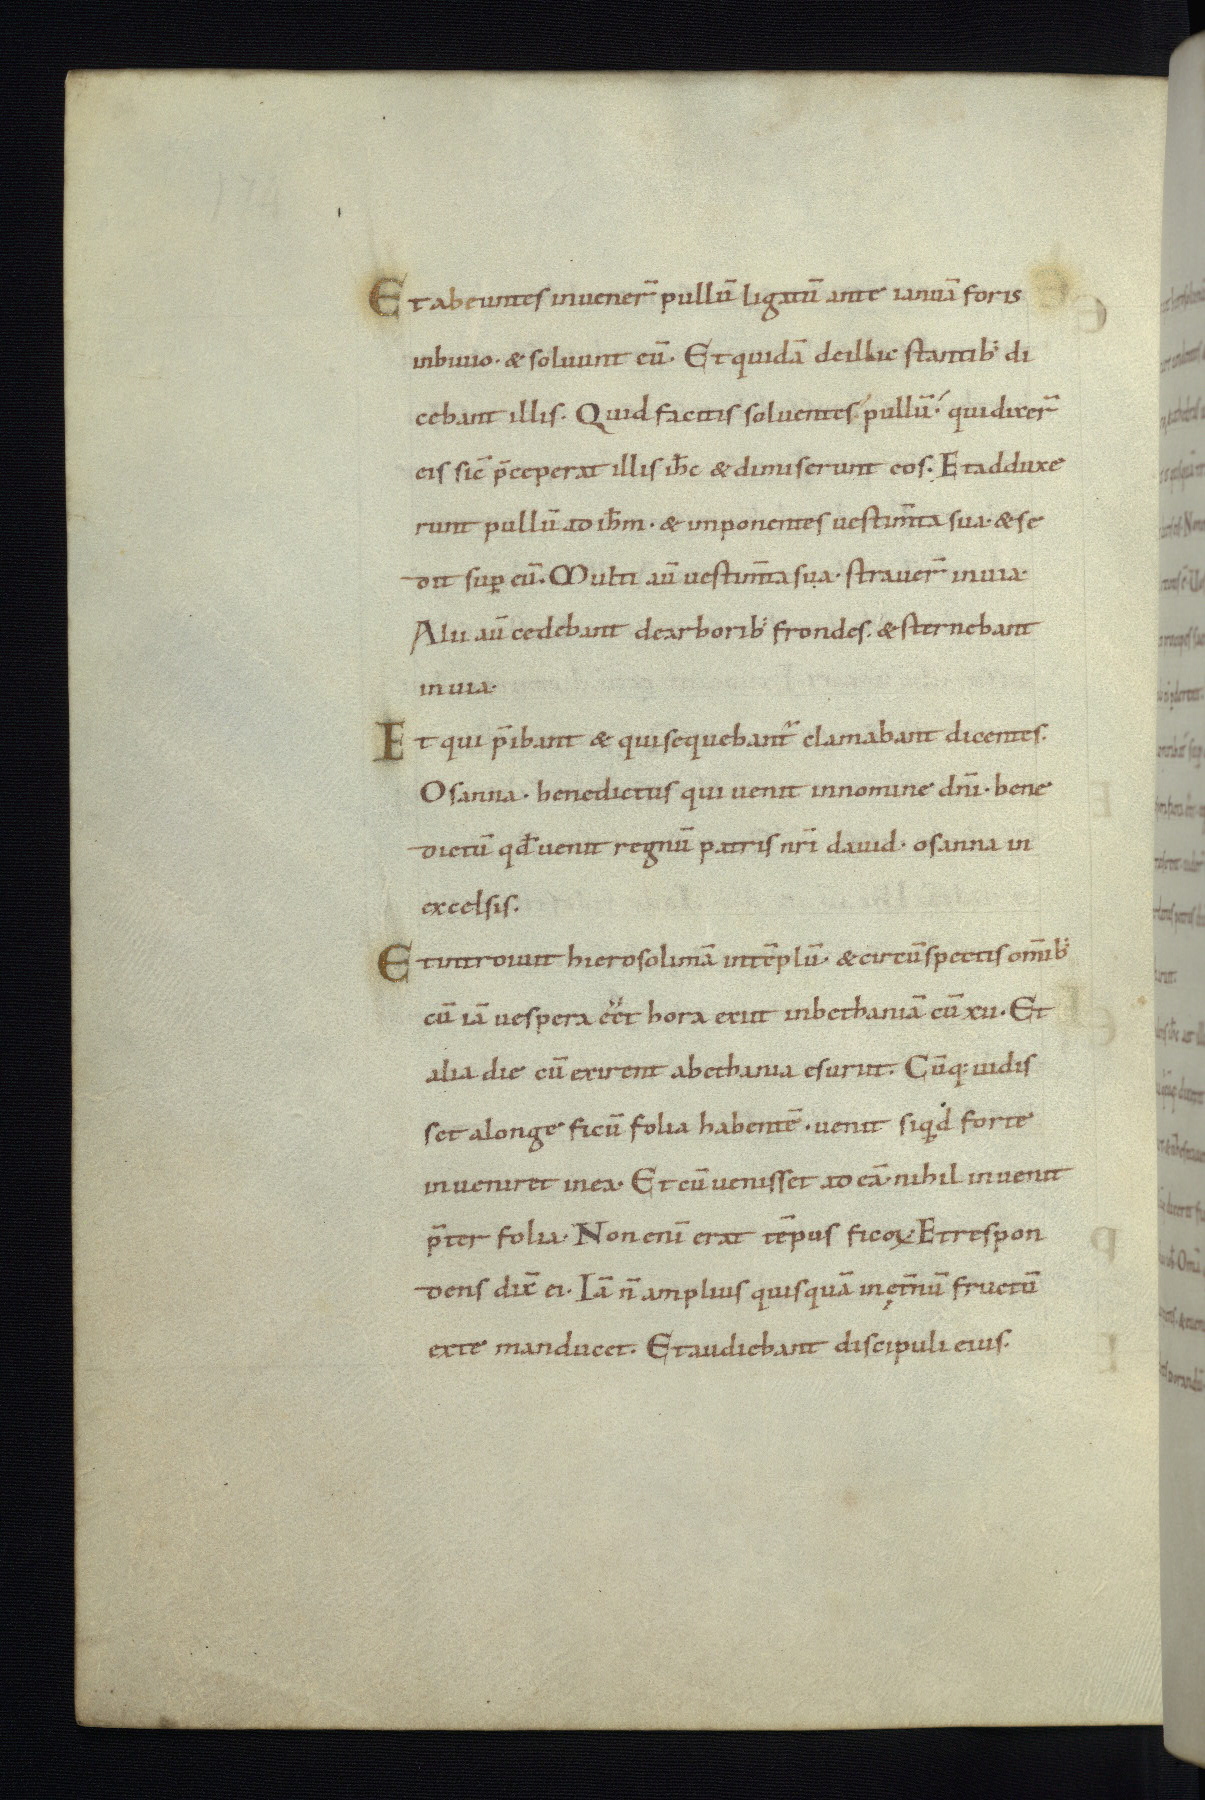 174
Et abeuntes inuener̄ pullū ligatū ante ianuā foris
inbiuio· & soluunt eū· Et quidā deillic stantib; di
cebant illis· Quid facitis soluentes pullū· qui dixer̄
eis sic̄ p̄ceperat illis ih̄c & dimiserunt eos· Et adduxe
runt pullū ad ih̄m· & inponentes uestim̄ta sua· & se
dit sup eū· Multi aū uestim̄ta sua· strauer̄ inuia·
Alii aū cedebant dearborib; frondes· & sternebant
in uia·
Et qui p̄ibant & qui sequebant᷑ clamabant dicentes·
Osanna· benedictus qui uenit innomine dn̄i· bene
dictū qd̄ uenit regnū patris nr̄i dauid· osanna in
excelsis·
Et introiuit hierosolimā intēplū· & circūspectis om̄ib;
cū iā uespera eēt hora exiit inbethaniā cū xii· Et
alia die cū exirent abethania esuriit· Cūq; uidis
set alonge ficū folia habentē· uenit siqd forte
inueniret inea· Et cū uenisset ad eā· nihil inuenit
p̄ter folia· Non enī erat tēpus ficoꝝ· Et respon
dens dix̄ ei· Iā n̄ amplius quisquā in ęt̄nū fructū
exte manducet· Et audiebant discipuli eius·